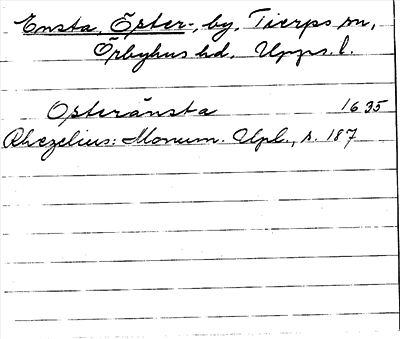 Ensta, Öster-, by, Tierps sn,
Örbyhus hd, Upps. l.
Österänsta 1635
Rhezelius: Monum. Upl., s. 187